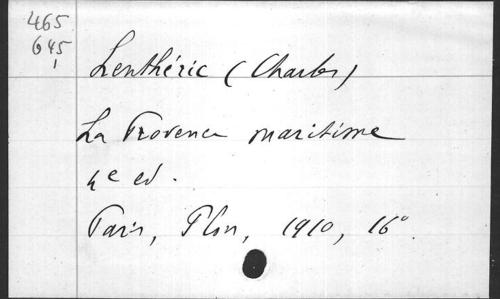 465
645
1
Lenthéric (Charles)
La Provence maritime
4e ed.
Paris, Plon, 1910, 16°.